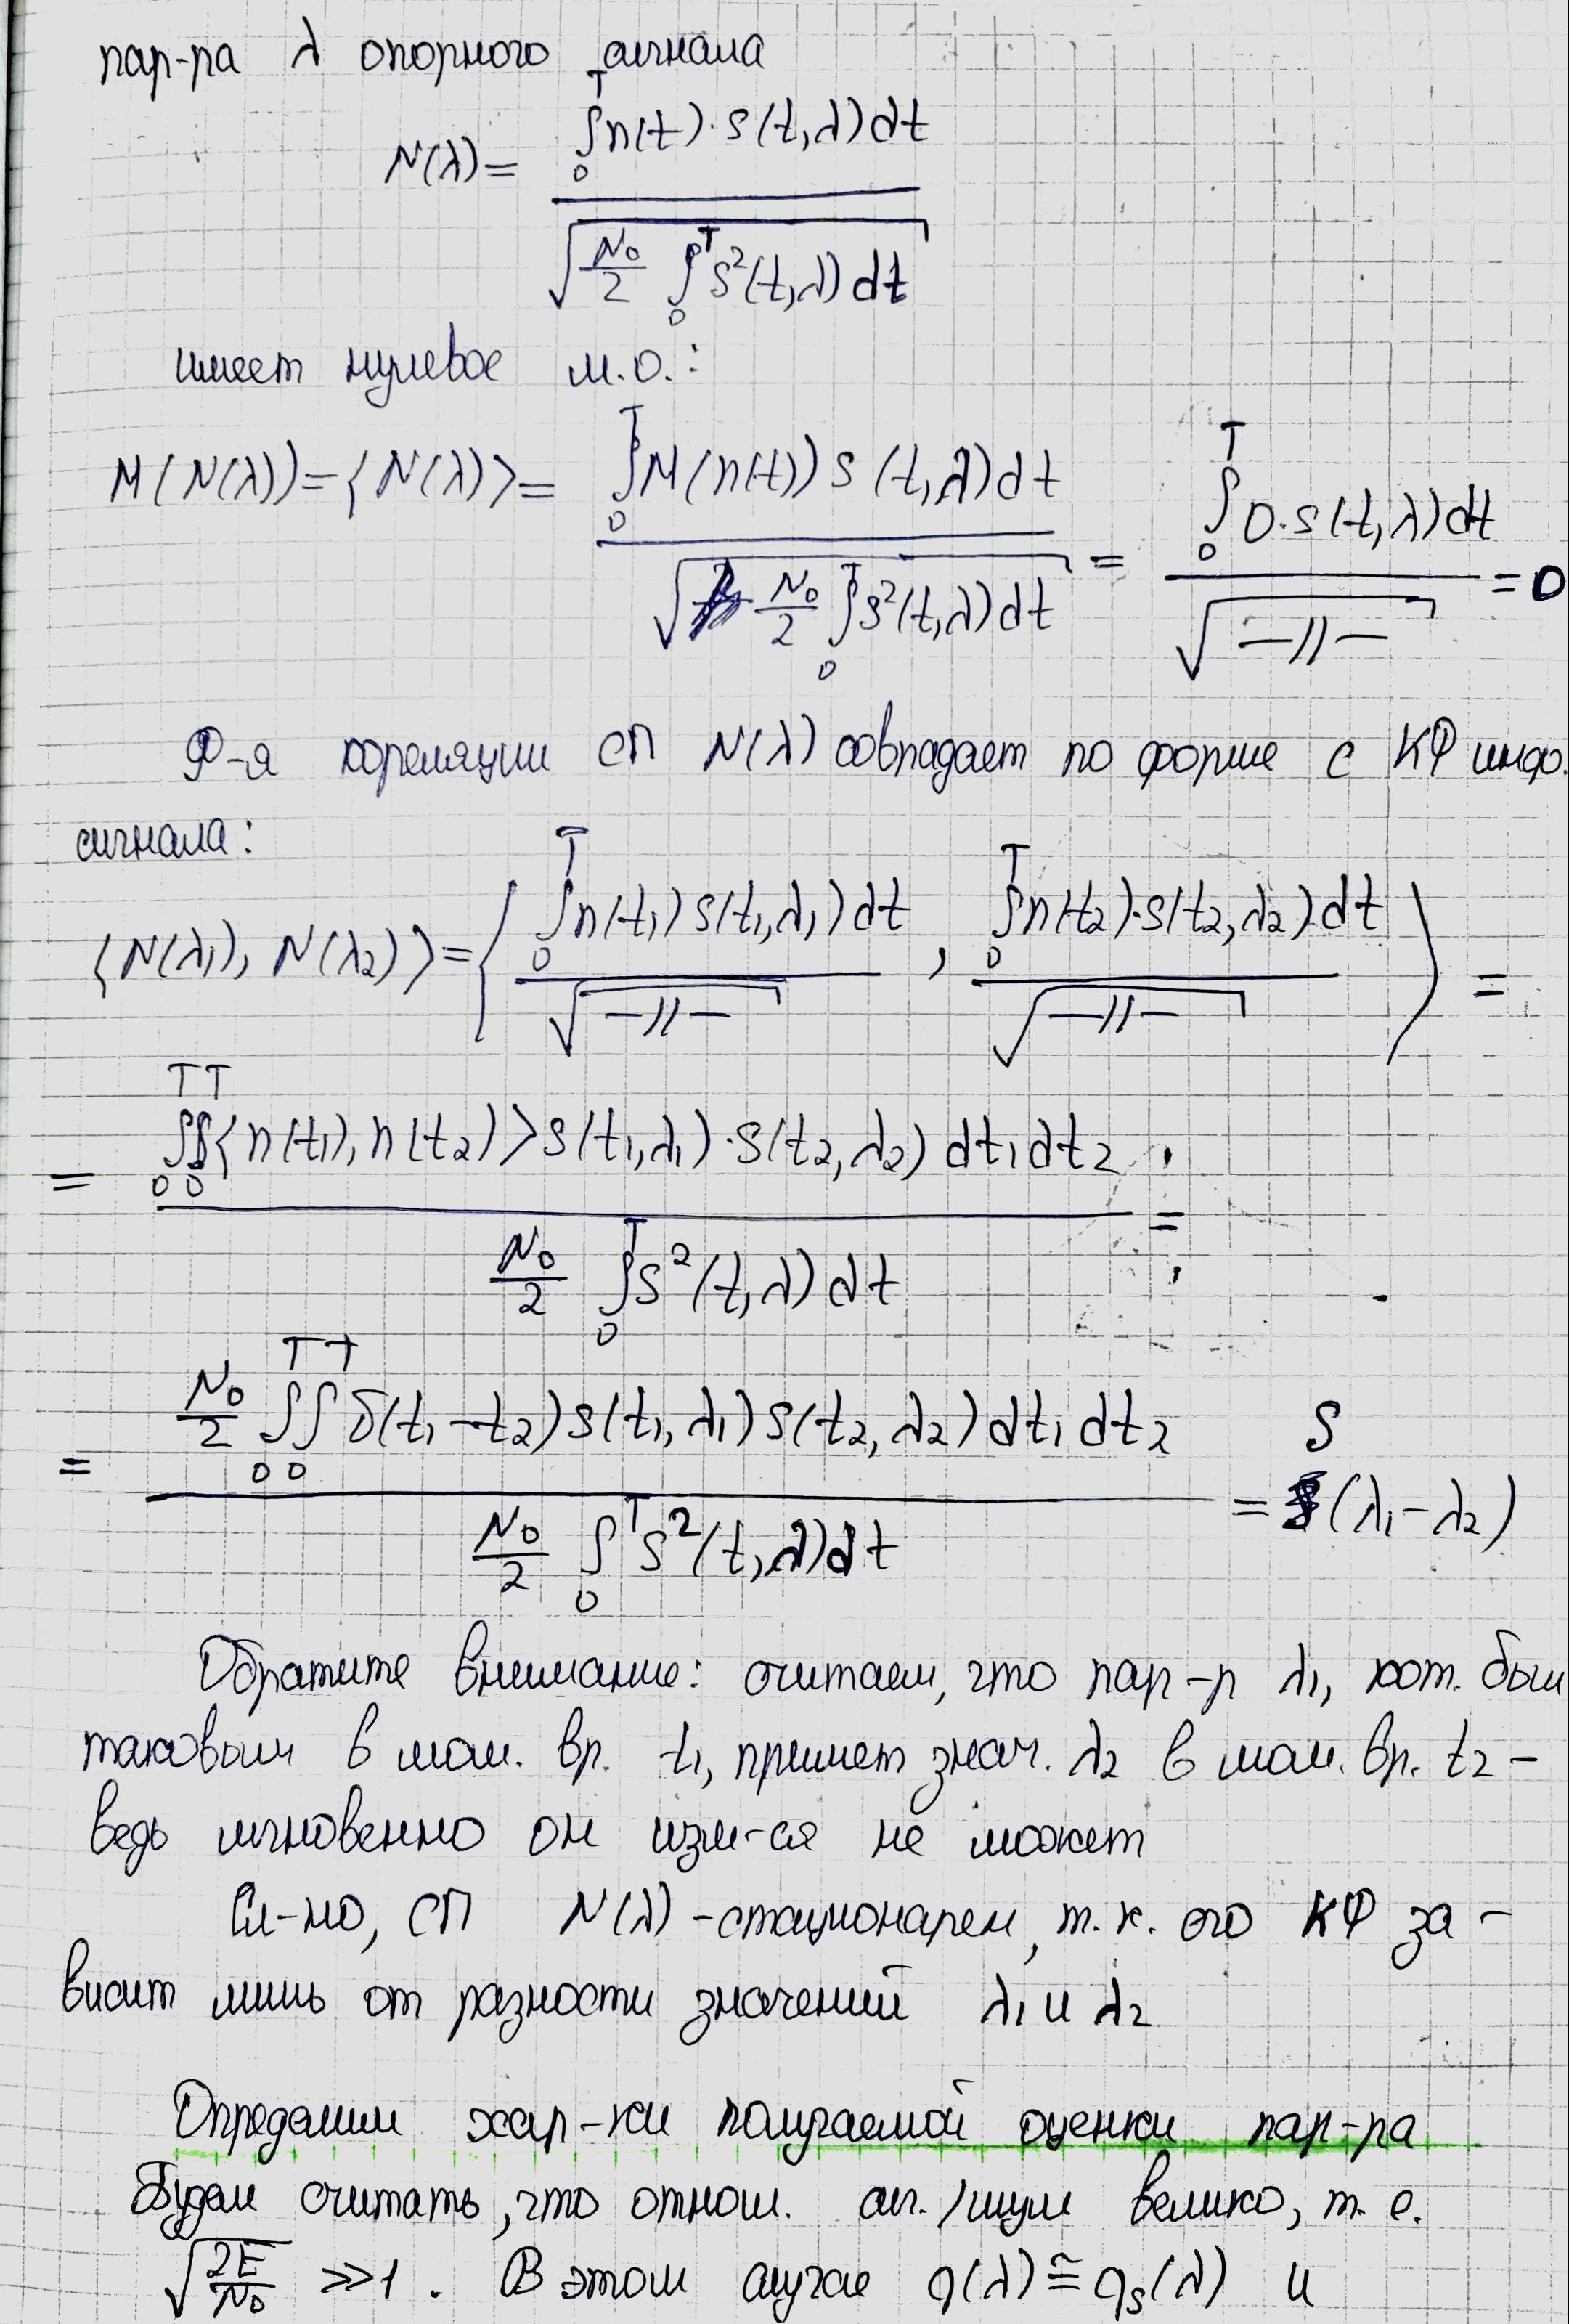 пар-ра λ опорного сигнала
N(λ) = \frac{\int_0^T n(t)·s(t,λ)dt}{\sqrt{\frac{N_0}{2} \int_0^T s^2(t,λ)dt}}
имеет нулевое м.о.:
M(N(λ)) = ⟨N(λ)⟩ = \frac{\int_0^T M(n(t)) s(t,λ)dt}{\sqrt{\frac{N_0}{2} \int_0^T s^2(t,λ)dt}} = \frac{\int_0^T 0·s(t,λ)dt}{\sqrt{-//-}} = 0
Ф-я кореляции СП N(λ) совпадает по форме с КФ инфо.
сигнала:
⟨N(λ_1), N(λ_2)⟩ = ⟨\frac{\int_0^T n(t_1) s(t_1,λ_1)dt}{\sqrt{-//-}}, \frac{\int_0^T n(t_2)·s(t_2,λ_2)dt}{\sqrt{-//-}}⟩ =
= \frac{\int_0^T \int_0^T ⟨n(t_1), n(t_2)⟩ s(t_1,λ_1)·s(t_2,λ_2) dt_1 dt_2}{\frac{N_0}{2} \int_0^T s^2(t,λ)dt} =
= \frac{\frac{N_0}{2} \int_0^T \int_0^T δ(t_1-t_2) s(t_1,λ_1) s(t_2,λ_2) dt_1 dt_2}{\frac{N_0}{2} \int_0^T s^2(t,λ)dt} = S(λ_1-λ_2)
Обратите внимание: считаем, что пар-р λ_1, кот. был
таковым в мом. вр. t_1, примет знач. λ_2 в мом. вр. t_2 –
ведь мгновенно он изм-ся не может
Сл-но, СП N(λ) – стационарен, т.к. его КФ за-
висит лишь от разности значений λ_1 и λ_2
Определим хар-ки получаемой оценки пар-ра
Будем считать, что отнош. сиг./шум велико, т.е.
\sqrt{\frac{2E}{N_0}} ≫ 1. В этом случае q(λ) ≅ q_s(λ) и